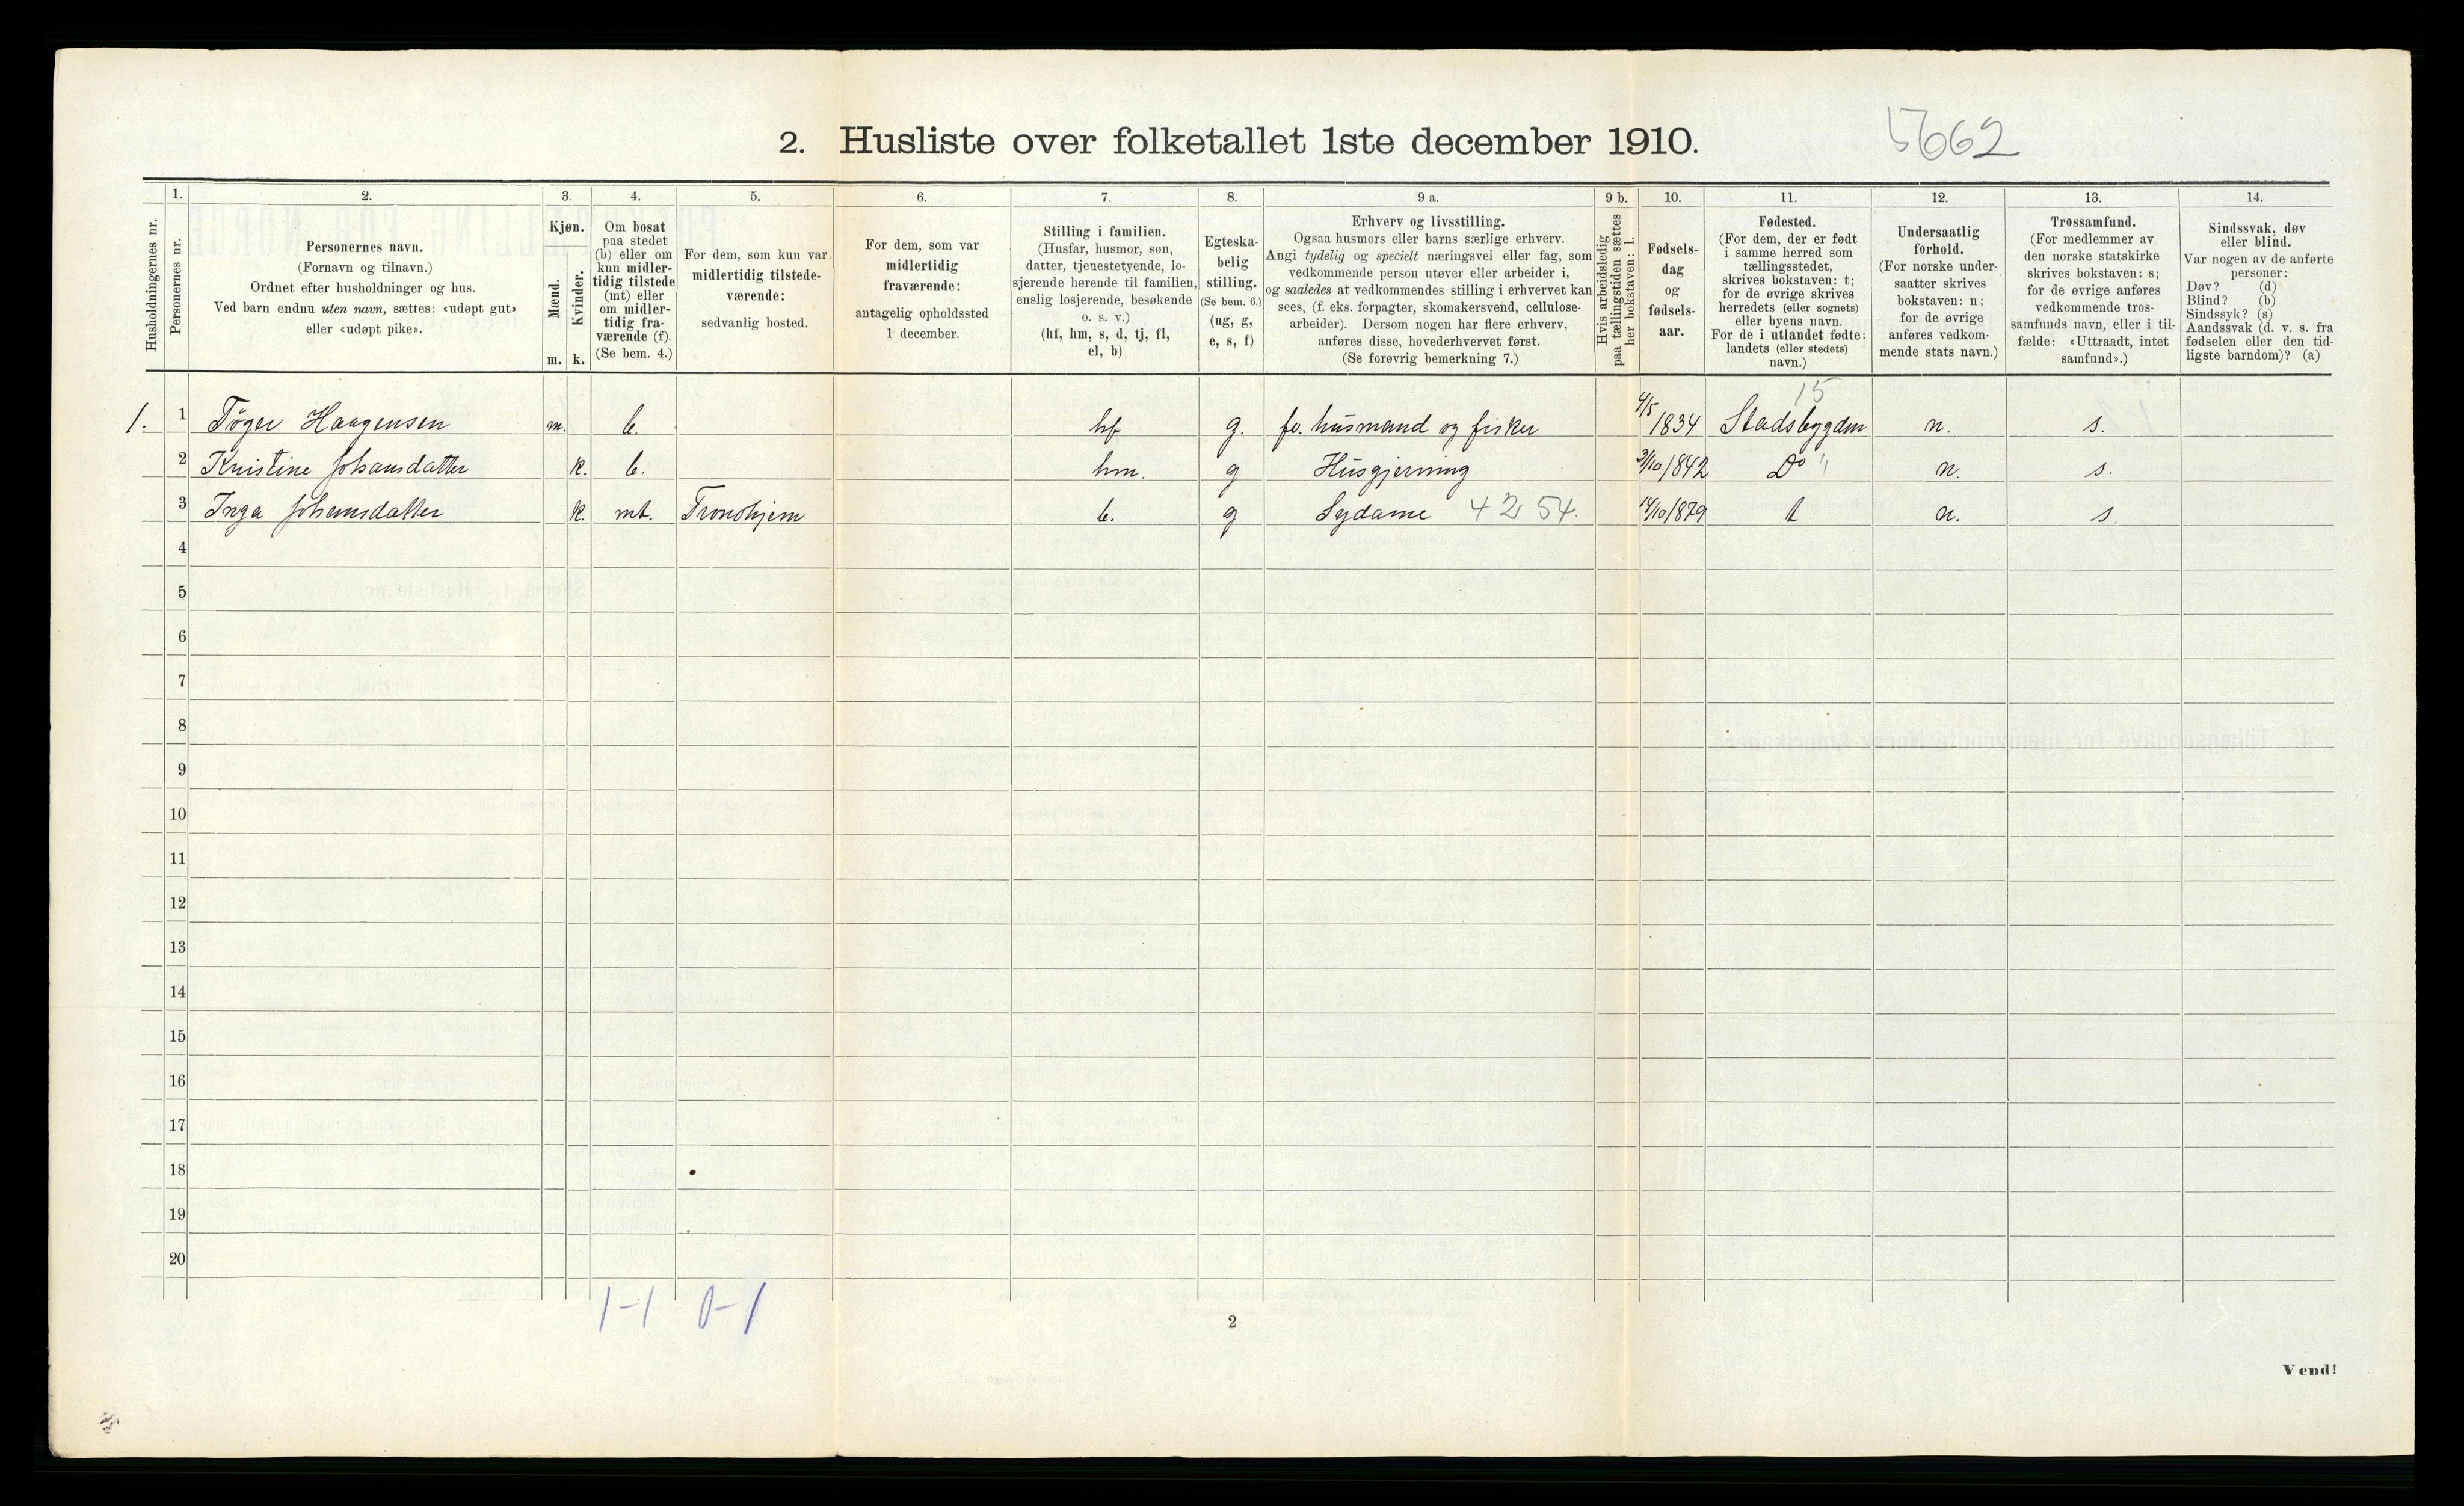 2. Husliste over folketallet 1ste december 1910.
5662
Husholdningernes nr.
1.
Personernes nr.
2.
Personernes navn.
(Fornavn og tilnavn.)
Ordnet efter husholdninger og hus.
Ved barn endnu uten navn, sættes: «udøpt gut»
eller «udøpt pike».
3.
Kjøn.
Mænd.
Kvinder.
m. k.
4.
Om bosat
paa stedet
(b) eller om
kun midler-
tidig tilstede
(mt) eller
om midler-
tidig fra-
værende (f).
(Se bem. 4.)
5.
For dem, som kun var
midlertidig tilstede-
værende:
sedvanlig bosted.
6.
For dem, som var
midlertidig
fraværende:
antagelig opholdssted
1 december.
7.
Stilling i familien.
(Husfar, husmor, søn,
datter, tjenestetyende, lo-
sjerende hørende til familien,
enslig losjerende, besøkende
o. s. v.)
(hf, hm, s, d, tj, fl,
el, b)
8.
Egteska-
belig
stilling.
(Se bem. 6.)
(ug, g,
e, s, f)
9 a.
Erhverv og livsstilling.
Ogsaa husmors eller barns særlige erhverv.
Angi tydelig og specielt næringsvei eller fag, som
vedkommende person utøver eller arbeider i,
og saaledes at vedkommendes stilling i erhvervet kan
sees, (f. eks. forpagter, skomakersvend, cellulose-
arbeider). Dersom nogen har flere erhverv,
anføres disse, hovederhvervet først.
(Se forøvrig bemerkning 7.)
9 b.
Hvis arbeidsledig
paa tællingstiden sættes
her bokstaven: l.
10.
Fødsels-
dag
og
fødsels-
aar.
11.
Fødested.
(For dem, der er født
i samme herred som
tællingsstedet,
skrives bokstaven: t;
for de øvrige skrives
herredets (eller sognets)
eller byens navn.
For de i utlandet fødte:
landets (eller stedets)
navn.)
12.
Undersaatlig
forhold.
(For norske under-
saatter skrives
bokstaven: n;
for de øvrige
anføres vedkom-
mende stats navn.)
13.
Trossamfund.
(For medlemmer av
den norske statskirke
skrives bokstaven: s;
for de øvrige anføres
vedkommende tros-
samfunds navn, eller i til-
fælde: «Uttraadt, intet
samfund».)
14.
Sindssvak, døv
eller blind.
Var nogen av de anførte
personer:
Døv? (d)
Blind? (b)
Sindssyk? (s)
Aandssvak (d. v. s. fra
fødselen eller den tid-
ligste barndom)? (a)
15
1. 1 Tøger Haagensen m. b. hf g. fo. husmand og fisker 4/5 1834 Stadsbygden n. s.
2 Kristine Johansdatter k. b. hm. g Husgjerning 3/10 1842 Do " n. s.
3 Inga Johansdatter k. mt. Trondhjem b. g Sydame 4254. 14/10 1879 t n. s
4
5
6
7
8
9
10
11
12
13
14
15
16
17
18
19
20
1-1 0-1
2
Vend!